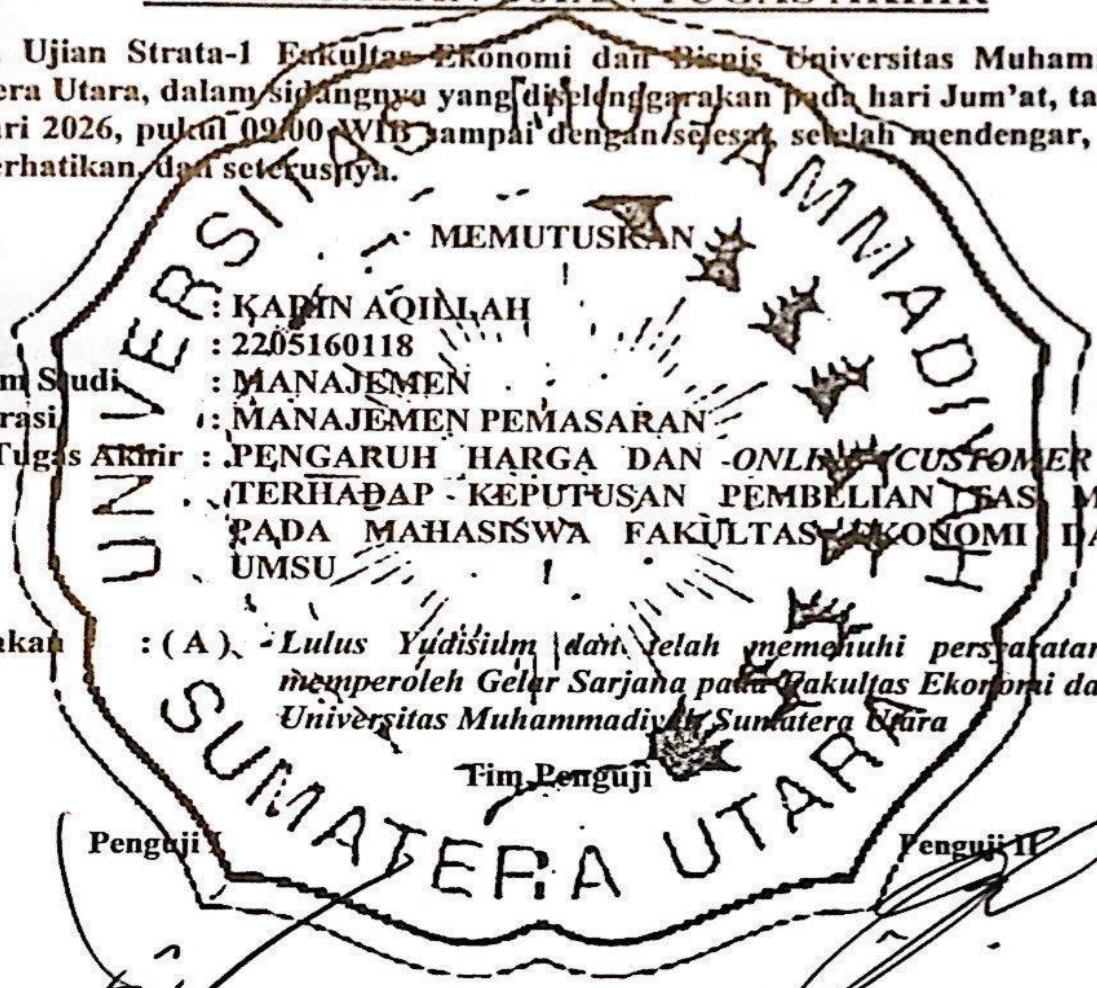 Ujian Strata-1 Fakultas Ekonomi dan Bisnis Universitas Muham
era Utara, dalam sidangnya yang diselenggarakan pada hari Jum'at, ta
ri 2026, pukul 09.00 WIB sampai dengan selesai, setelah mendengar,
erhatikan, dan seterusnya.
MEMUTUSKAN
: KARIN AQILLAH
: 2205160118
m Studi : MANAJEMEN
rasi : MANAJEMEN PEMASARAN
Tugas Akhir : PENGARUH HARGA DAN ONLINE CUSTOMER
TERHADAP KEPUTUSAN PEMBELIAN TAS M
PADA MAHASISWA FAKULTAS EKONOMI DA
UMSU
akan : ( A ) Lulus Yudisium dan telah memenuhi persyaratan
memperoleh Gelar Sarjana pada Fakultas Ekonomi da
Universitas Muhammadiyah Sumatera Utara
Tim Penguji
Penguji I Penguji II
UNIVERSITAS MUHAMMADIYAH
SUMATERA UTARA